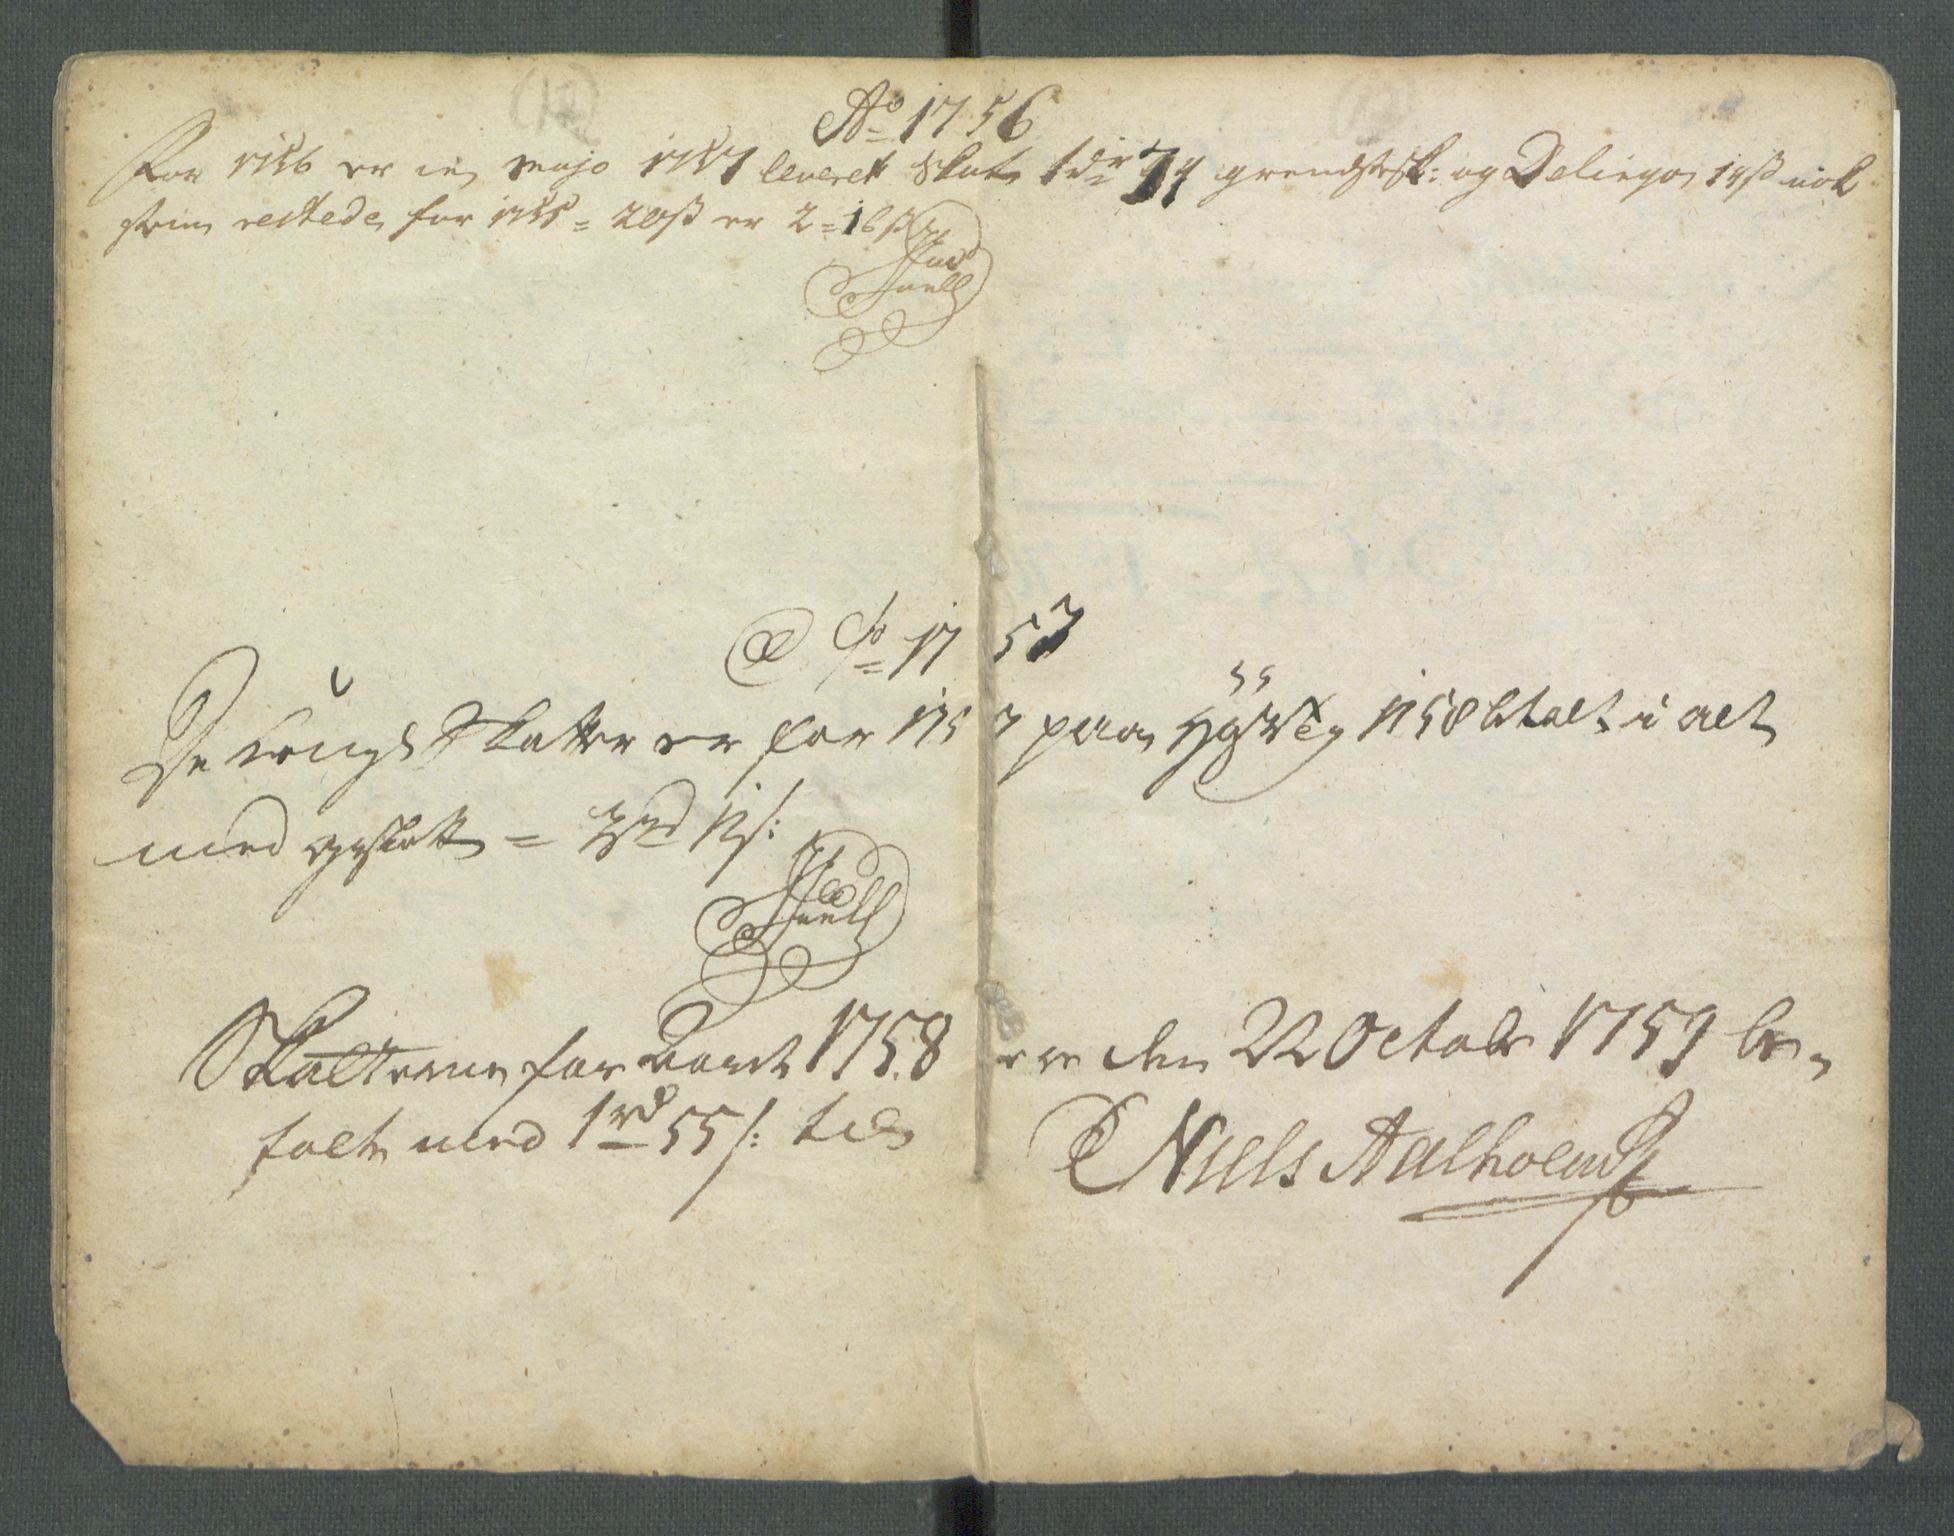 Ao 1756
For 1756 er in majo 1757 leveret skat 1 dr 74 grendsesk: og Delinqu 14ß nok
restede for 1755 = 20ß er 2 = 16ß
Juell
Ao 1757
De Kongl Skatter er for 1757 paa 1758 btalt i alt
med = 3rd 12s:
Juell
Skatterne for Aaret 1758 ere den 22 Octobr 1759 be-
talt med 1rd 55s: til
Niels Aalholm